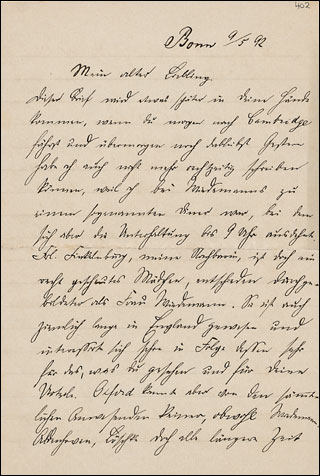 402
Bonn 9/5 92
Mein alter Liebling.
Dieser Brief wird etwas später in deine Hände
kommen, wenn du morgen nach Cambridge
fährst und übermorgen noch bleibst. Gestern
habe ich auch nicht mehr rechtzeitig schreiben
können, weil ich bei Wiedemanns zu
einem sogenannten diner war, bei dem
sich aber die Unterhaltung bis 9 Uhr ausdehnte
Frl. Finkelnburg, meine Nachbarin, ist doch ein
recht gescheutes Mädchen, entschieden durchge-
bildeter als Frau Wiedemann. Sie ist auch
ziemlich lange in England gewesen und
interessirt sich schon in Folge dessen sehr
für das, was du gesehen und für deine
Urteile. Oxford kennt aber von den sämmt-
lichen Anwesenden keiner, obwohl Wiedemann
Löschke doch alle längere Zeit